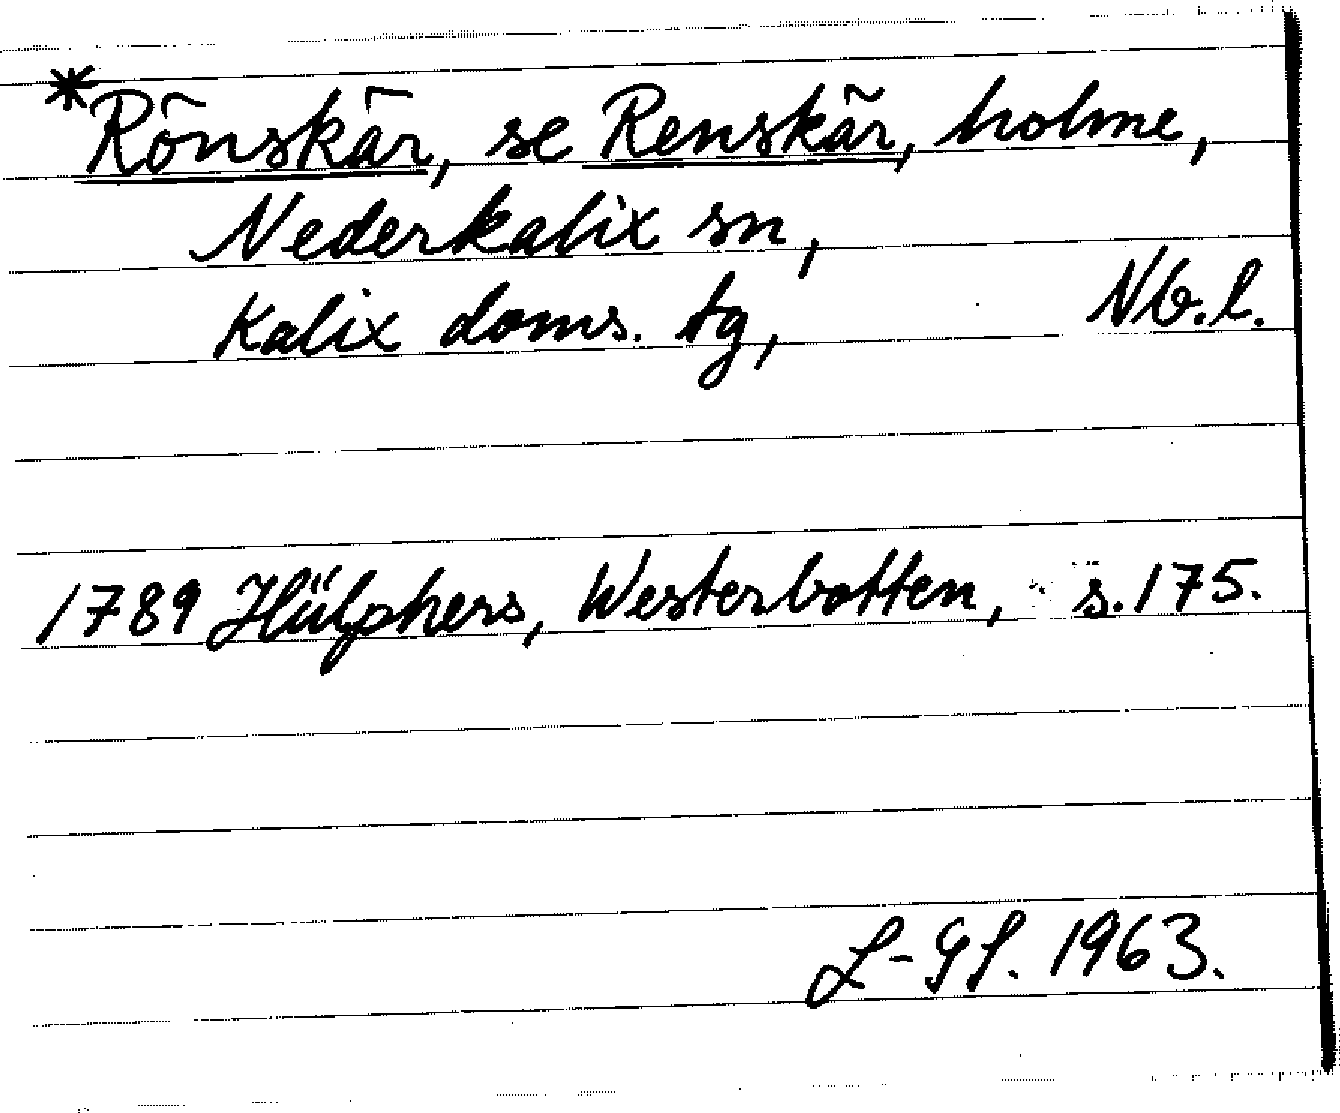 *Rönskär, se Renskär, holme,
Nederkalix sn,
Kalix doms. tg, Nb.l.
1789 Hülphers, Westerbotten, s. 175.
L-GL. 1963.